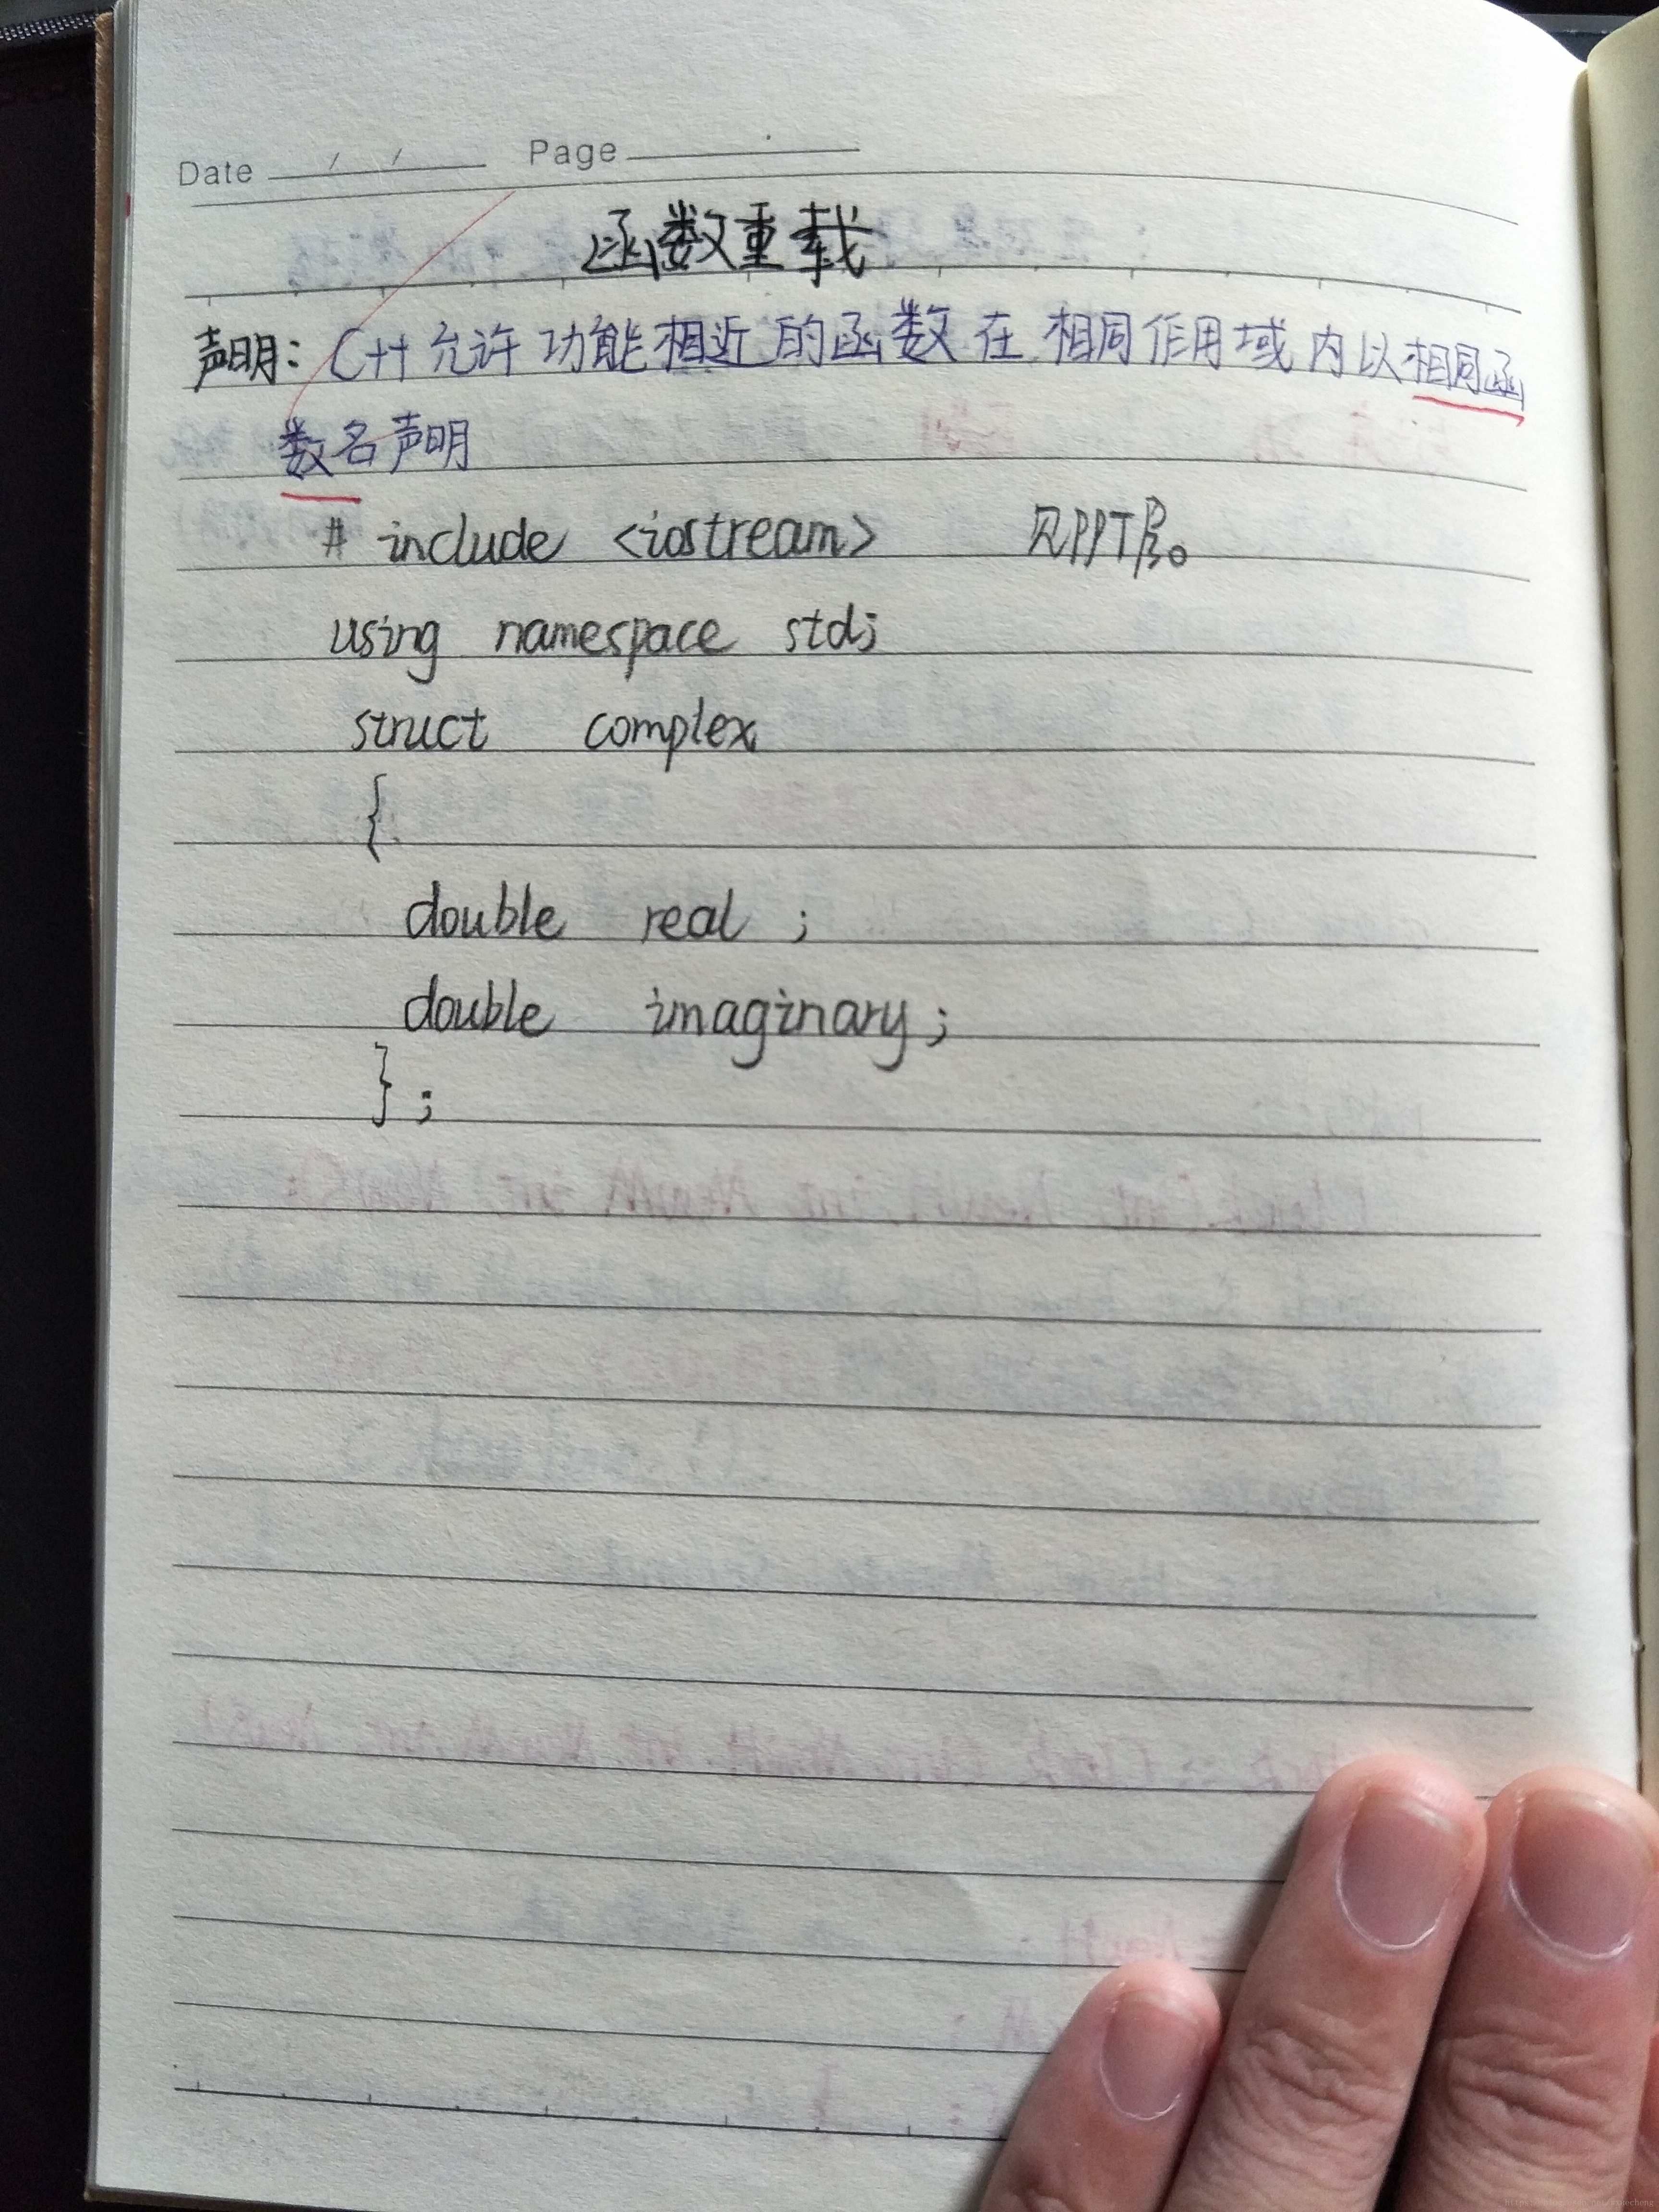 Date / / Page
函数重载
声明：C++允许功能相近的函数在相同作用域内以相同函
数名声明
# include <iostream> 见PPT
using namespace std;
struct complex
{
double real ;
double imaginary;
} ;